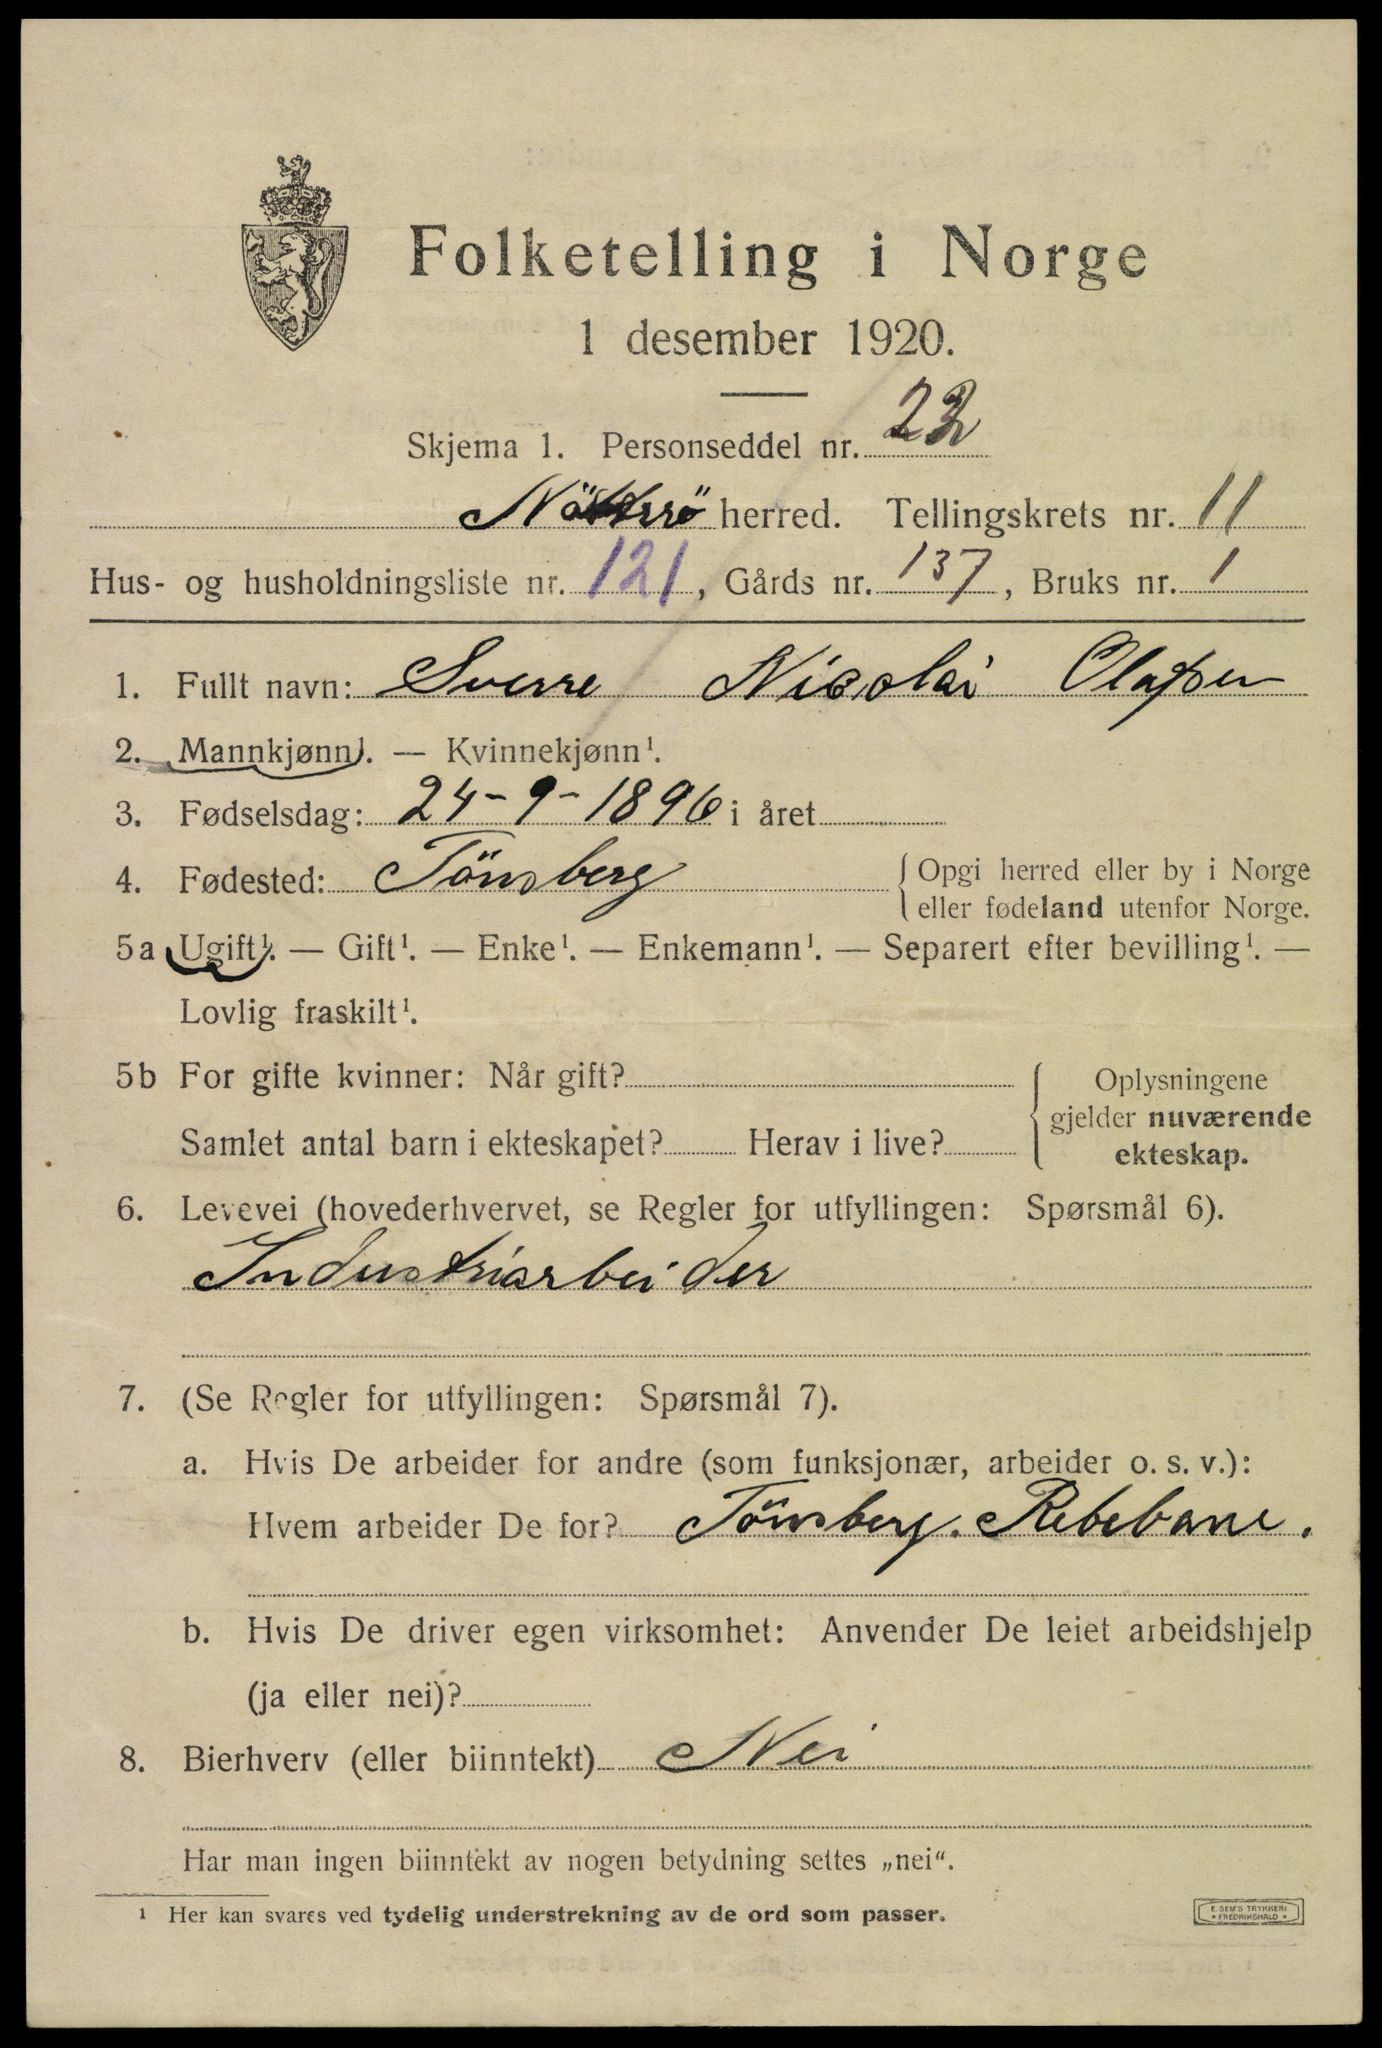 Folketelling i Norge
1 desember 1920.
Skjema 1. Personseddel nr. 22
Nötterö herred. Tellingskrets nr. 11
Hus- og husholdningsliste nr. 121, Gårds nr. 137, Bruks nr. 1
1. Fullt navn: Sverre Nicolai Olafsen
2. Mannkjønn¹. — Kvinnekjønn¹.
3. Fødselsdag: 24-9-1896 i året
4. Fødested: Tönsberg { Opgi herred eller by i Norge
eller fødeland utenfor Norge.
5a Ugift¹. — Gift¹. — Enke¹. — Enkemann¹. — Separert efter bevilling¹. —
Lovlig fraskilt¹.
5b For gifte kvinner: Når gift? { Oplysningene
gjelder nuværende
Samlet antal barn i ekteskapet? Herav i live?
ekteskap.
6. Levevei (hovederhvervet, se Regler for utfyllingen: Spørsmål 6).
Industriarbeider
7. (Se Regler for utfyllingen: Spørsmål 7).
a. Hvis De arbeider for andre (som funksjonær, arbeider o. s. v.):
Hvem arbeider De for? Tönsberg. Rebebane.
b. Hvis De driver egen virksomhet: Anvender De leiet arbeidshjelp
(ja eller nei)?
8. Bierhverv (eller biinntekt) Nei
Har man ingen biinntekt av nogen betydning settes „nei“.
¹ Her kan svares ved tydelig understrekning av de ord som passer.
E. SEM'S TRYKKERI
• FREDRIKSHALD •